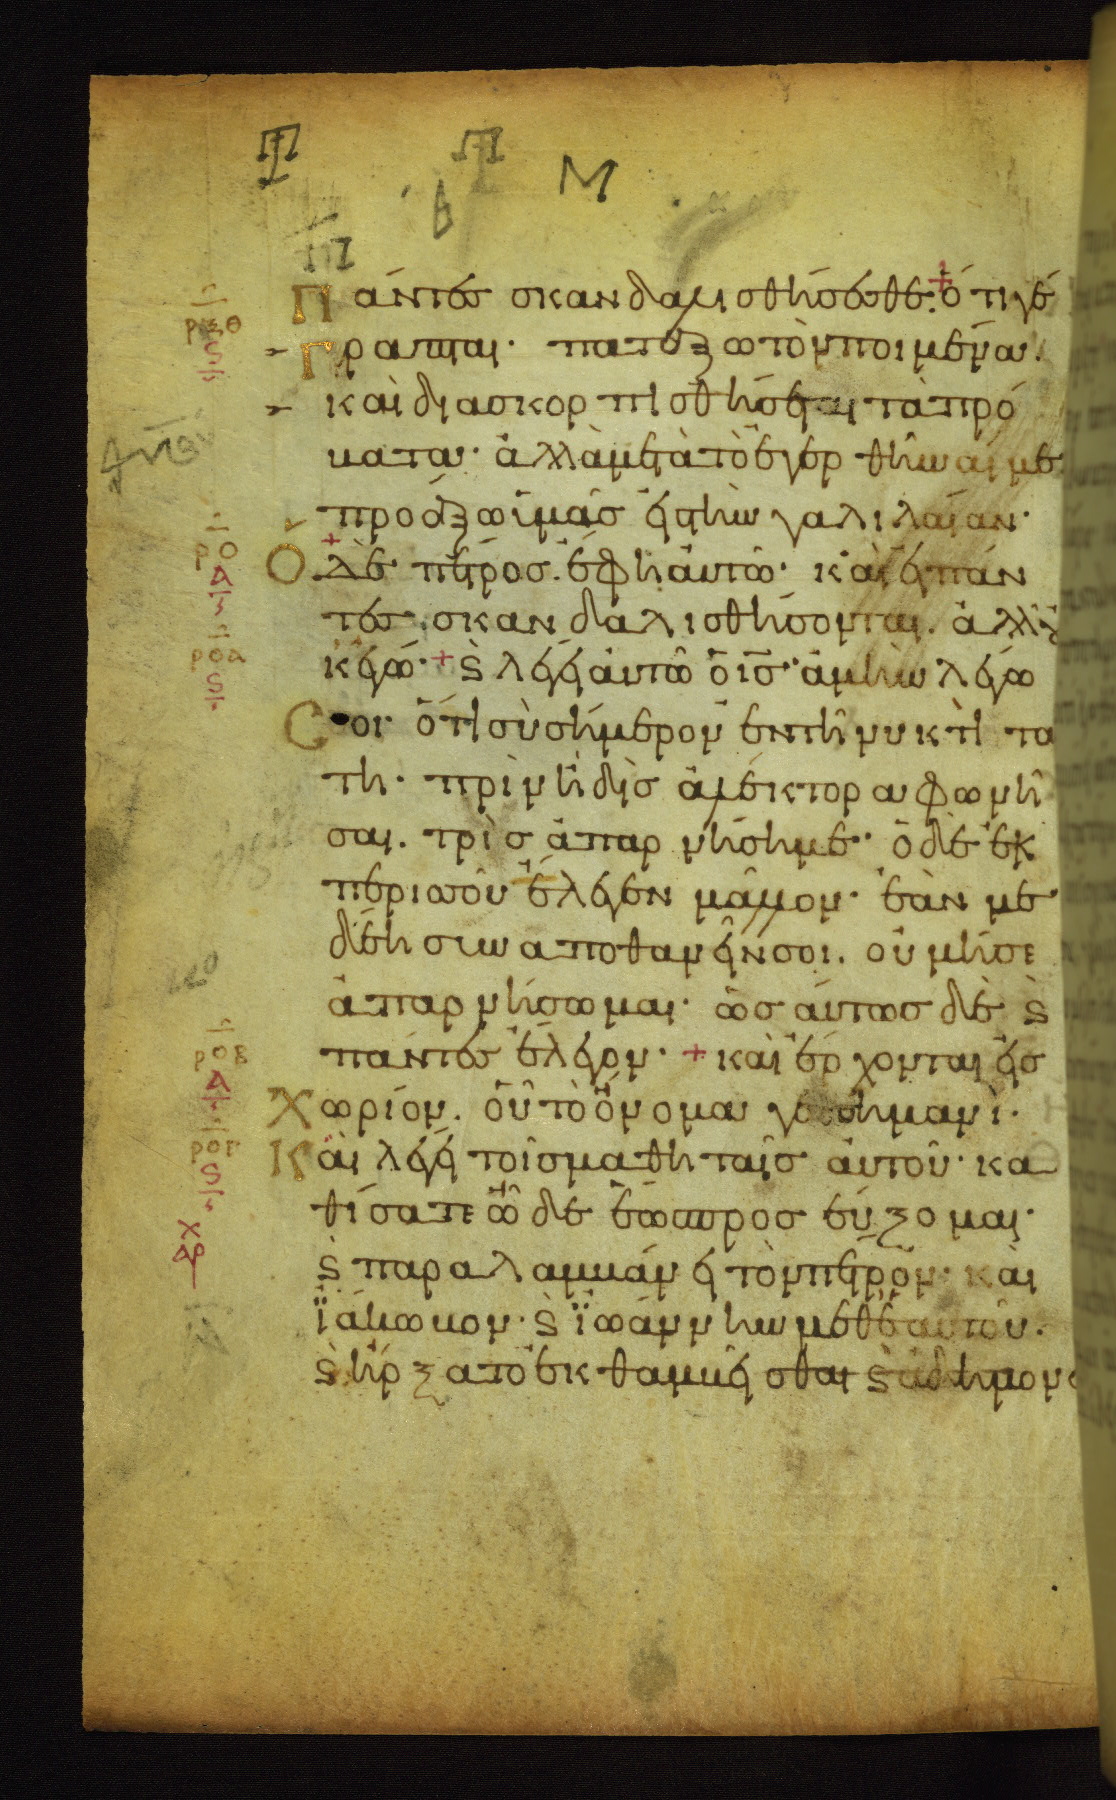 Πάντες σκανδαλισθήσεσθε. + ὅτι γέ
γραπται· πατάξω τὸν ποιμένα.
καὶ διασκορπισθήσεται τὰ πρό
βατα· ἀλλὰ μετὰ τὸ ἐγερθῆναι με
προάξω ὑμᾶς εἰς τὴν γαλιλαίαν·
Ὁ δὲ πέτρος. ἔφη αὐτῶ· καὶ εἰ πάν
τες σκανδαλισθήσονται. ἀλλ' οὐ
κ ἐγώ· + ϗ λέγει αὐτῶ ὁ ι̅ς̅· ἀμὴν λέγω
Σοι ὅτι σὺ σήμερον ἐν τῆ νυκτὶ ταύ
τη· πρὶν ἢ δὶς ἀλέκτορα φωνῆ
σαι. τρὶς ἀπαρνήση με· ὁ δὲ ἐκ
περισσοῦ ἔλεγεν μᾶλλον· ἐὰν με
δέη συναποθανεῖν σοι. οὐ μή σε
ἀπαρνήσωμαι· ὡσαύτως δὲ ϗ
πάντες ἔλεγον· + καὶ ἔρχονται εἰς
Χωρίον. οὗ τὸ ὄνομα γεθσημανὶ·
Καὶ λέγει τοῖς μαθηταῖς αὐτοῦ· κα
θίσατε ὧδε ἕως προσεύξομαι·
ϗ παραλαμβάνει τὸν πέτρον· καὶ
ϊάκωβον· ϗ ϊωάννην μεθ' ἑαυτοῦ.
ϗ ἤρξατο ἐκθαμβεῖσθαι ϗ ἀδημονε
ρξθ
ϛ
ρο
α
ροα
ϛ
ροβ
α
ρογ
ϛ
Μ